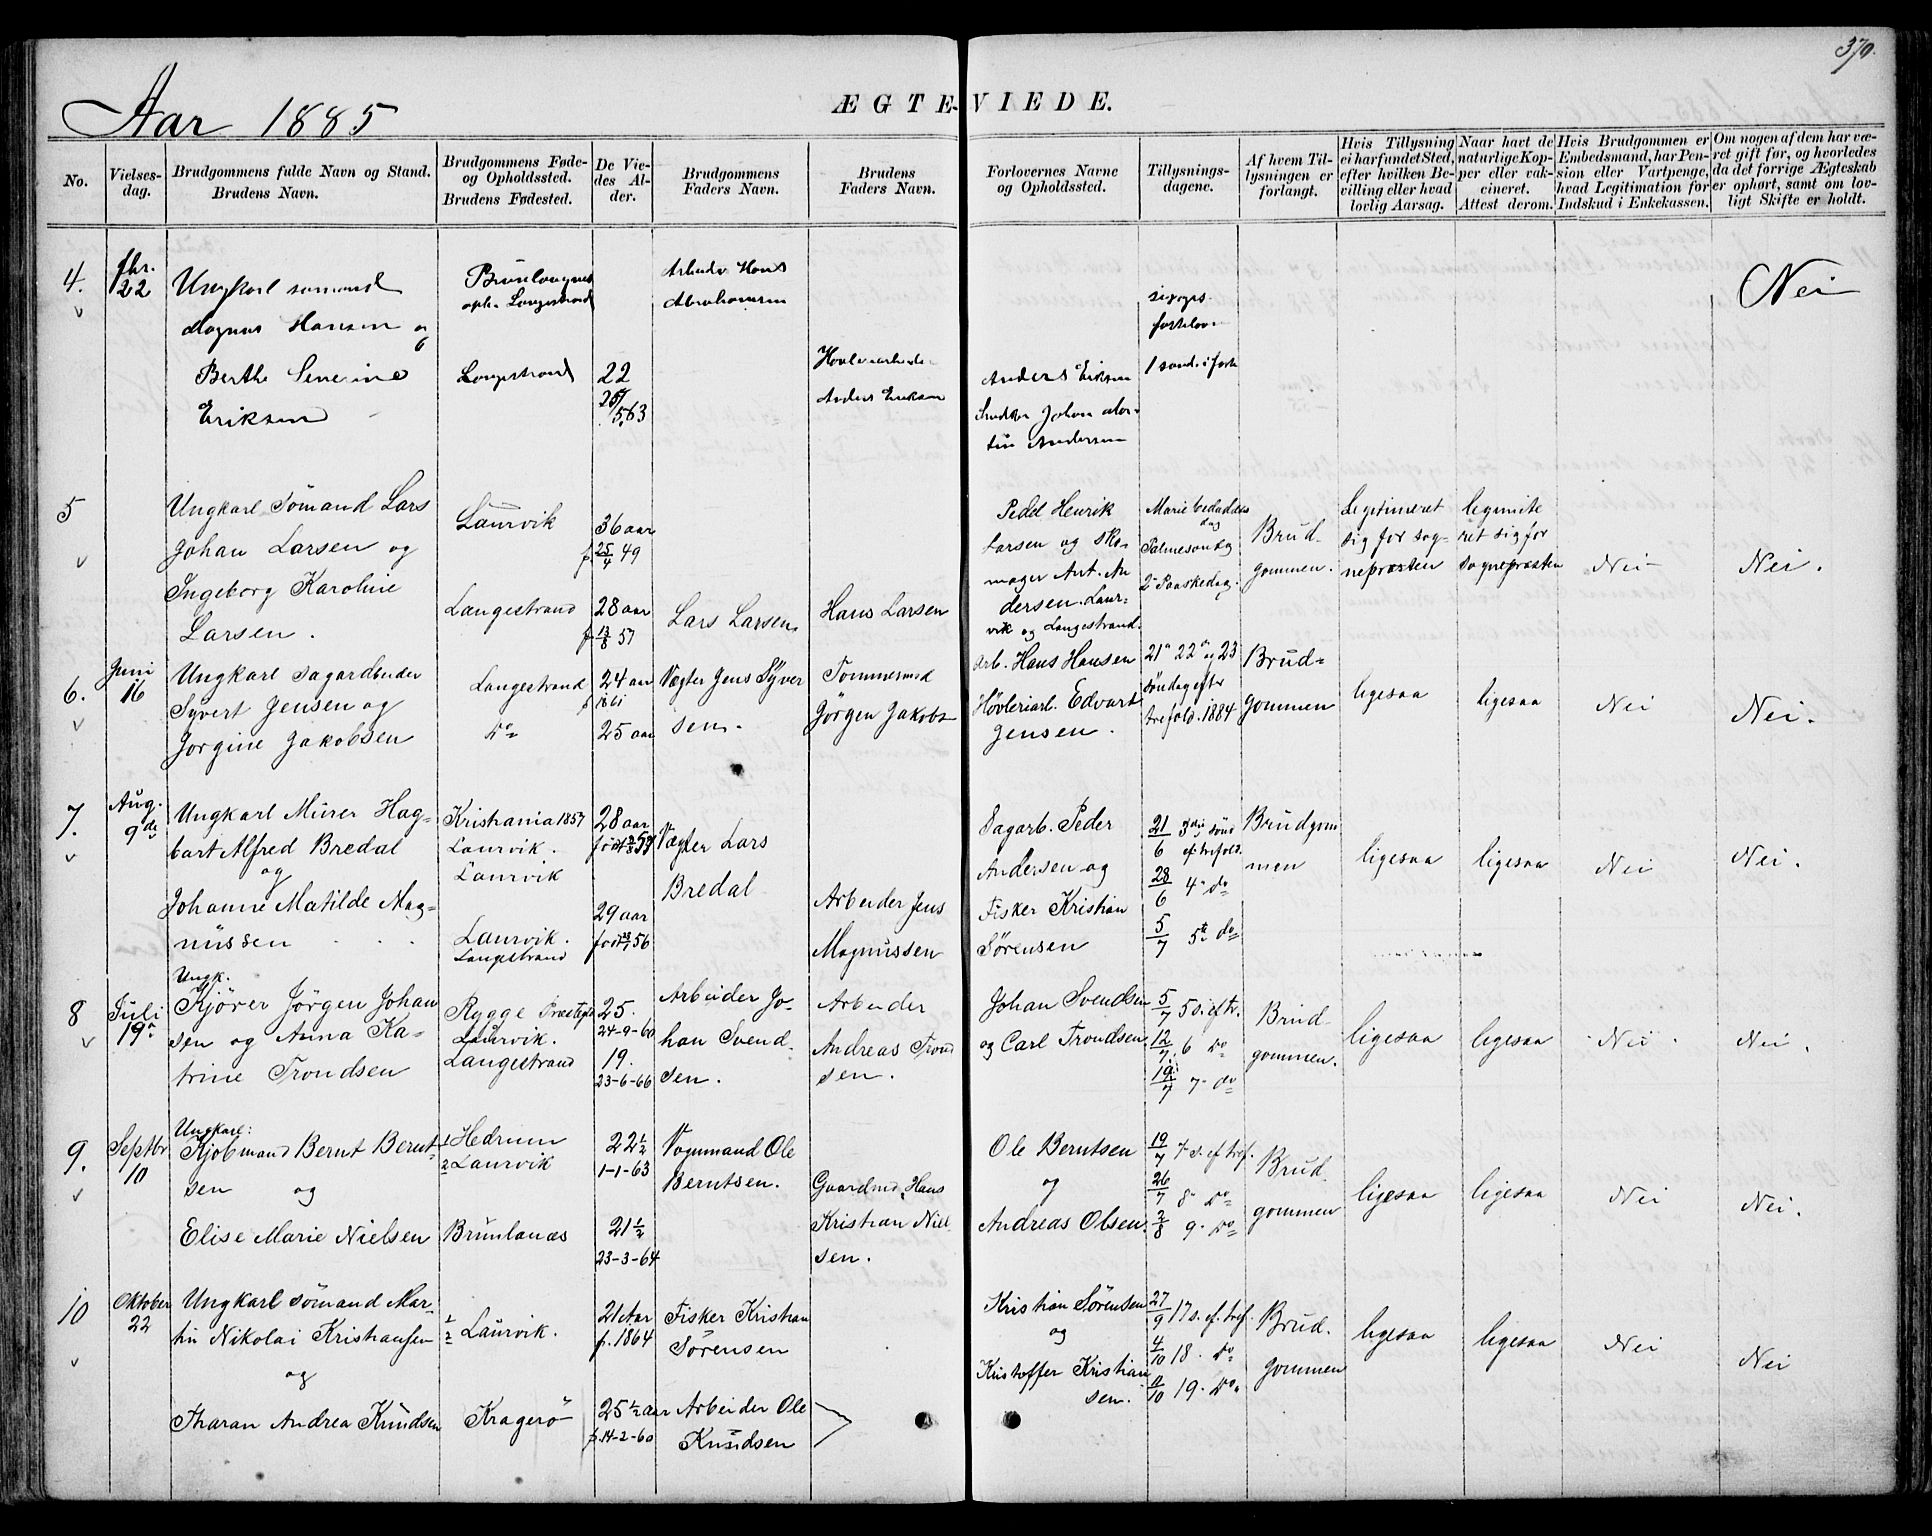 370.
Aar 1885
ÆGTEVIEDE.
No.
Vielses-
dag.
Brudgommens fulde Navn og Stand.
Brudens Navn.
Brudgommens Føde-
og Opholdssted.
Brudens Fødested.
De Vie-
des Al-
der.
Brudgommens
Faders Navn.
Brudens
Faders Navn.
Forlovernes Navne
og Opholdssted.
Tillysnings-
dagene.
Af hvem Til-
lysningen er
forlangt.
Hvis Tillysning
ei har fundet Sted,
efter hvilken Be-
villing eller hvad
lovlig Aarsag.
Naar havt de
naturlige Kop-
per eller vak-
cineret.
Attest derom.
Hvis Brudgommen er
Embedsmand, har Pen-
sion eller Vartpenge,
hvad Legitimation for
Indskud i Enkekassen.
Om nogen af dem har væ-
ret gift før, og hvorledes
da det forrige Ægteskab
er ophørt, samt om lov-
ligt Skifte er holdt.
4.
fbr.
22
Ungkarl sømand
Magnus Hansen og
Berthe Severine
Eriksen
oph. Langestrand
Langestrand
22
563
Arbeider Hans
Abrahamsen
Anders Eriksen
Anders Eriksen
Snedker Johan Mar-
tin Andersen
1 sønd. i faste
Nei
5
Ungkarl Sømand Lars
Johan Larsen og
Ingeborg Karoline
Larsen.
Laurvik
Langestrand
36 aar
f. 25/4 49
28 aar
f. 13/8 57
Lars Larsen
Hans Larsen
Henrik
Larsen og Sko-
mager Ant. An
dersen. Laur-
vik og Langestrand.
Marie bebudelses
dag
Palmesøndag
2. Paaskedag.
Brud-
gommen.
Legitimeret
sig for sog-
nepræsten
legimite
ret sig for
sognepræsten
Nei
Nei.
6.
Juni
16
Ungkarl Sagarbeider
Syvert Jensen og
Jorgine Jakobsen
Langestrand
Do
24 aar
1861
25 aar
Vægter Jens Syver
sen.
Tømmermd
Jørgen Jakobs
Arb. Hans Hansen
Høvleriarb. Edvart
Jensen.
21' 22' og 23
søndag eftr
trefold. 1884
Brud-
gommen
ligesaa
ligesaa
Nei
Nei.
7.
Aug.
9de
Ungkarl Murer Hag-
bart Alfred Bredal
og
Johanne Matilde Mag-
nussen
Kristiania 1857
Laurvik.
Laurvik
Laurvik.
Langestrand
28 aar
29 aar
56
Vægter Lars
Bredal
Arbeider Jens
Magnussen
Sagarb. Peder
Andersen og
Fisker Kristian
Sørensen
21/6 3die sønd
ef. trefold.
28/6 4' do
5/7 5te do
Brudgom
men
ligesaa
ligesaa
Nei
Nei.
8
Juli
19'
Ungk.
Kjører Jørgen Johan
sen og Anna Ka-
trine Trondsen
Rygge Præstegd
Laurvik.
Langestrand
25.
24-9-60
19.
23-6-66
Arbeider Jo-
han Svend-
sen.
Arbeider
Andreas Trond
sen.
Johan Svendsen
og Carl Trondsen
5/7 5 s. ef tr.
12/7 6 do
19/7 7- do
Brud-
gommen.
ligesaa
ligesaa
Nei
Nei.
9.
Septbr
10
Ungkarl:
Kjøbmand Bernt Bernt-
sen og
Elise Marie Nielsen
1 Hedrum
2 Laurvik
Brunlanæs
22 1/2
1-1-63
21 1/2
23-3-64
Vognmand Ole
Berntsen.
Gaardmd. Hans
Kristian Niel-
sen.
Ole Berntsen
og
Andreas Olsen
19/7 7 s. ef tref.
26/7 8' do
2/8 9. do
Brud-
gommen
ligesaa
ligesaa
Nei
Nei.
10
Oktober
22
Ungkarl sømand Mar-
tin Nikolai Kristiansen
og
Tharan Andrea Knudsen
1/2 Laurvik.
Kragerø
21 Aar
f. 1864
25 1/2 aar
f. 14-2-60
Fisker Kristian
Sørensen
Arbeider Ole
Knudsen
Kristian Sørensen
og
Kristoffer Kristian
sen.
27/9 17 s. ef. tref.
4/10 18. do
11/10 19. do
Brud-
gommen
ligesaa
ligesaa
Nei
Nei